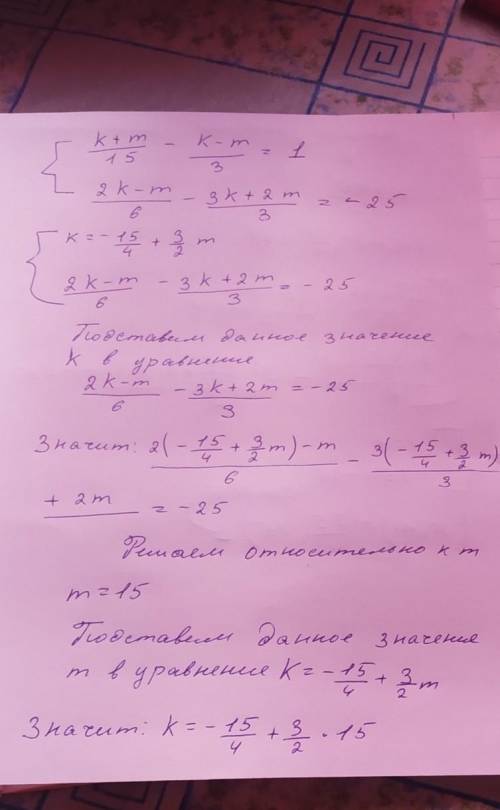 { (k+m)/15 - (k-m)/3 = 1
(2k-m)/6 - (3k+2m)/3 = -25
{ k = -15/4 + 3/2 m
(2k-m)/6 - (3k+2m)/3 = -25
Подставим данное значение
k в уравнение
(2k-m)/6 - (3k+2m)/3 = -25
Значит: (2(-15/4 + 3/2 m) - m)/6 - (3(-15/4 + 3/2 m)/3
+ 2m = -25
Решаем относительно к m
m = 15
Подставим данное значение
m в уравнение K = -15/4 + 3/2 m
Значит: k = -15/4 + 3/2 · 15